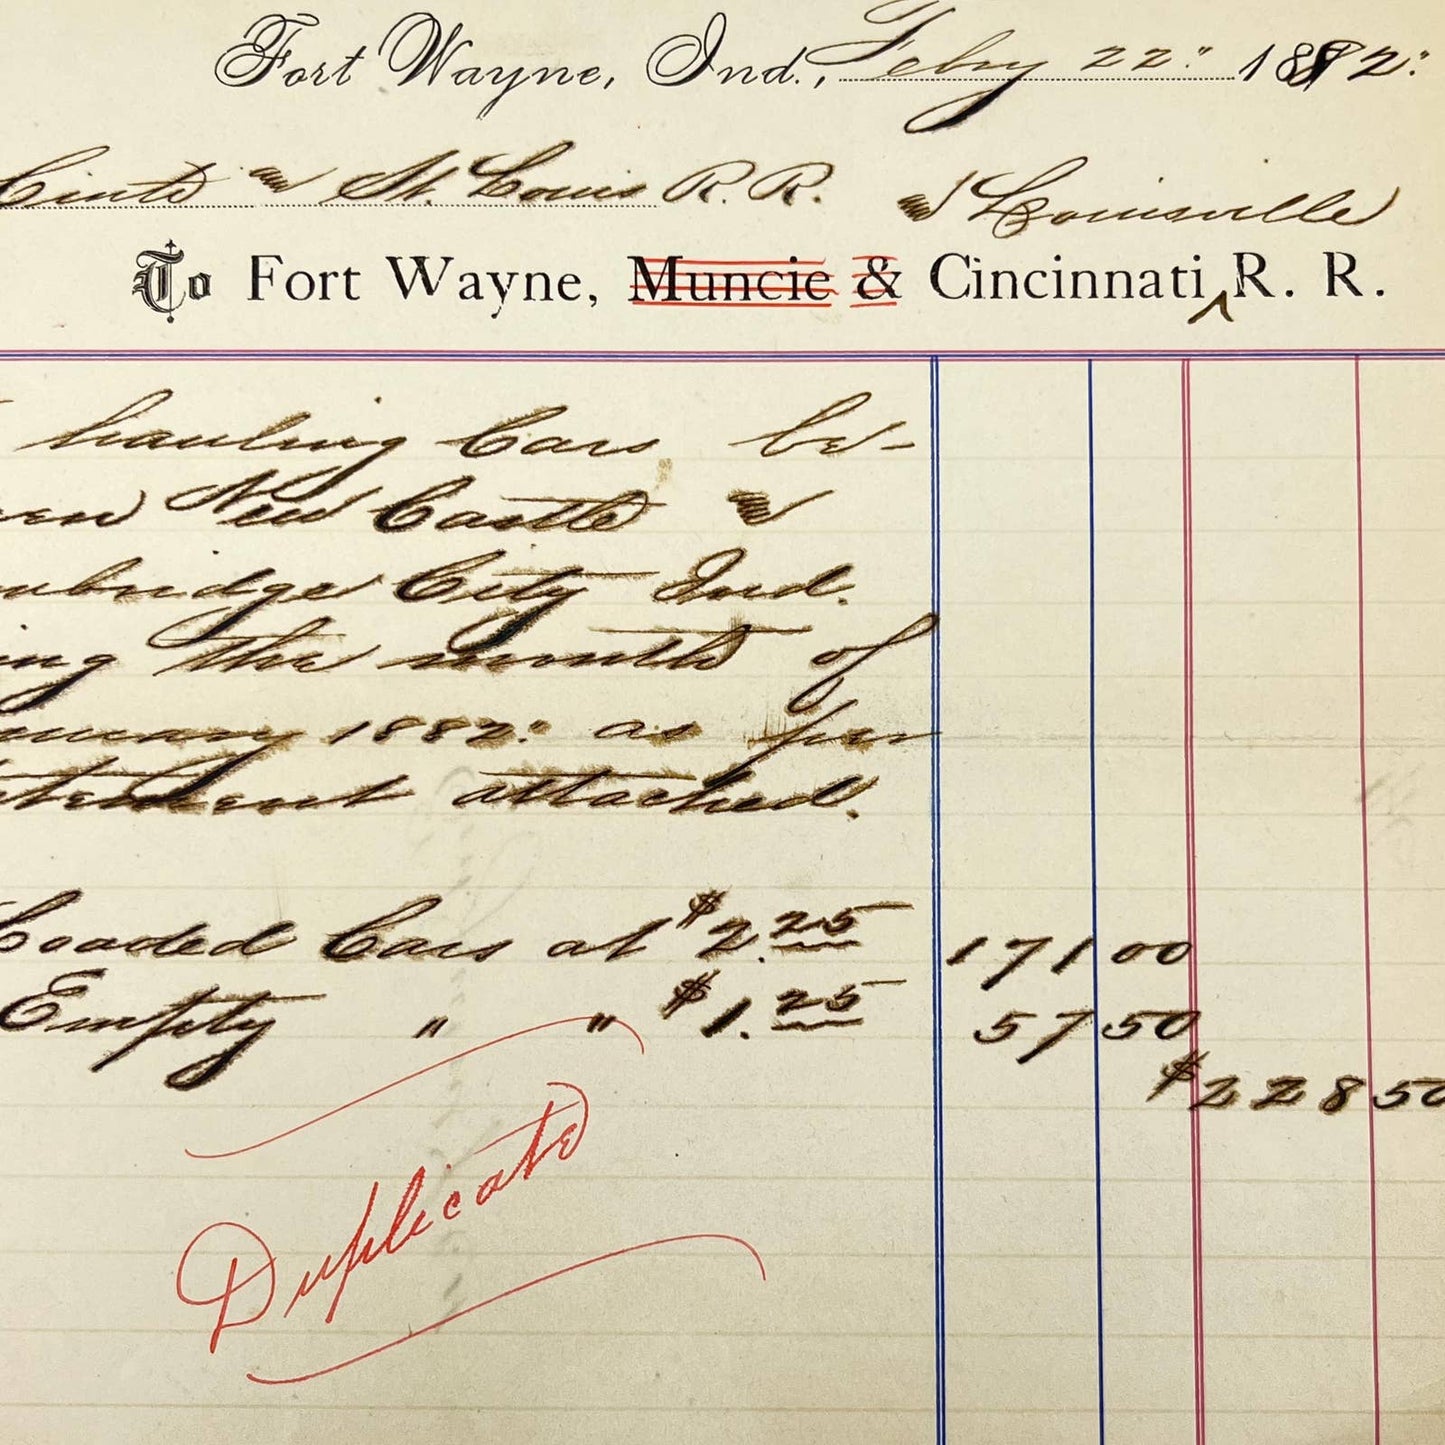 Fort Wayne, Ind., Feby 22" 1882.
St. Louis R. R. & Louisville
To Fort Wayne, Muncie & Cincinnati R. R.
hauling Cars be-
een New Castle &
mbridge City Ind.
ing the month of
nuary 1882" as per
tatement attached.
Loaded Cars at $2.25 171 00
Empty " " $1.25 57 50
$228 50
Duplicate